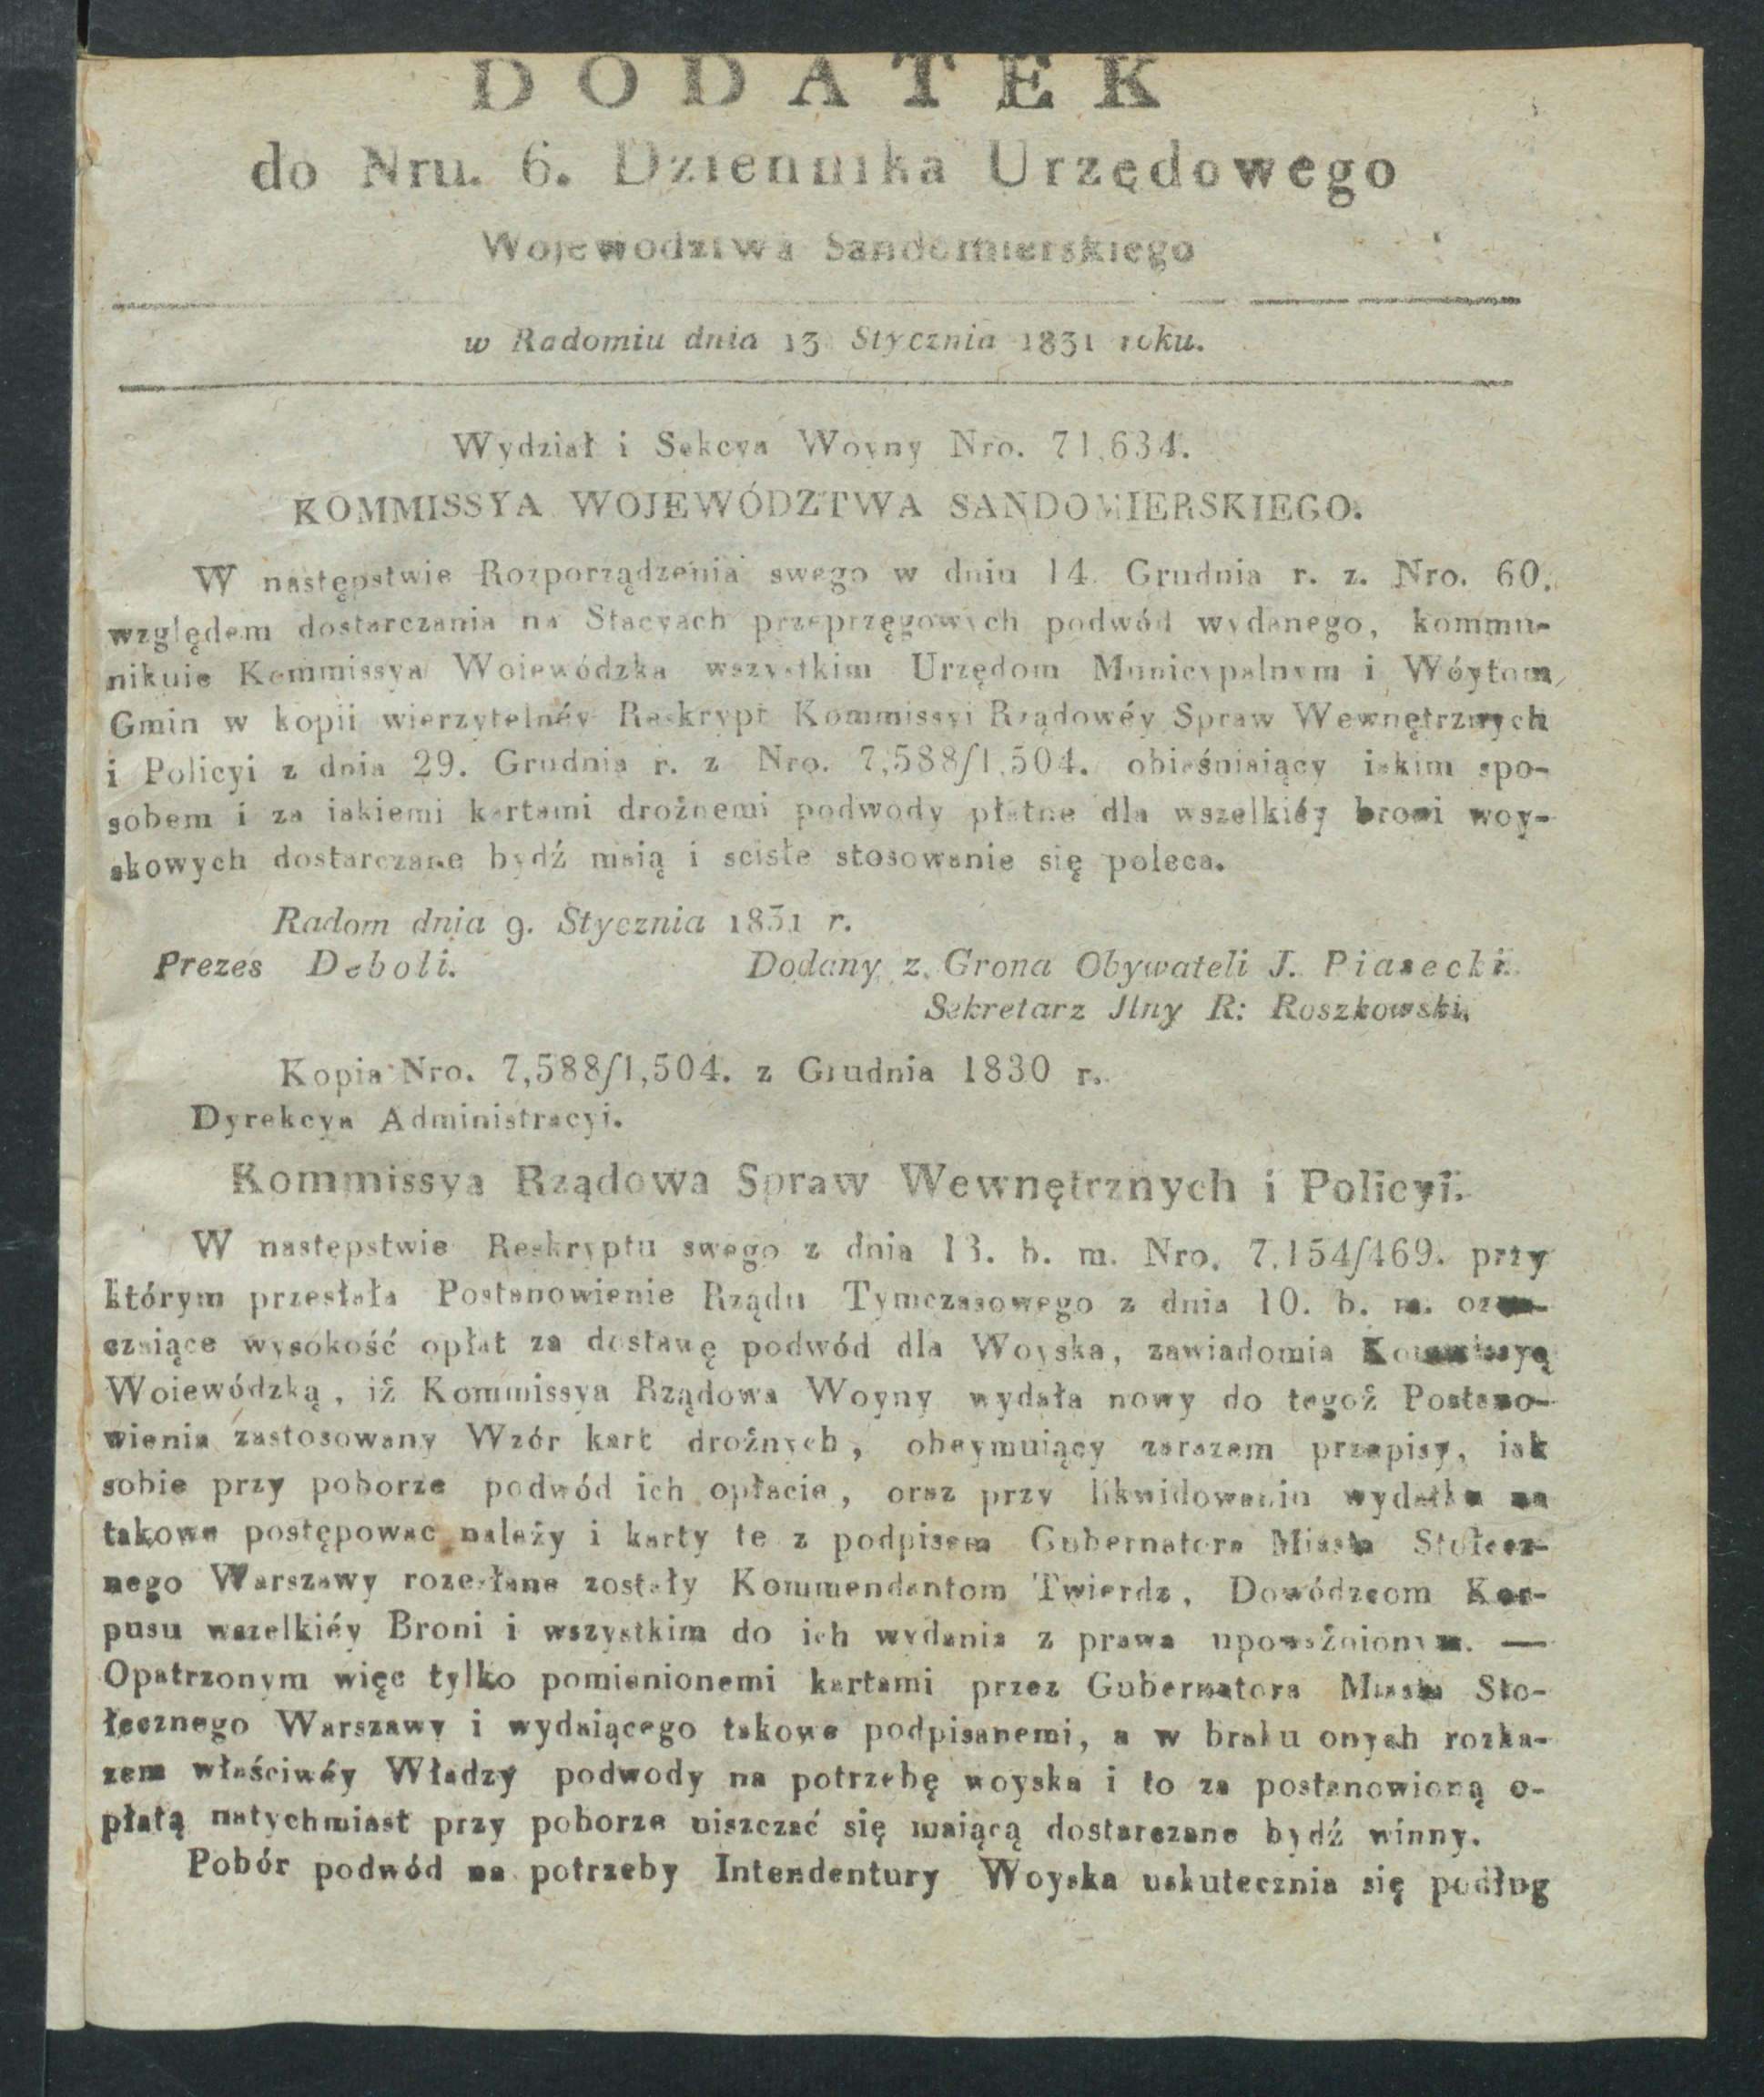 DODATEK
do Nru. 6. Dziennika Urzędowego
Wojewodztwa Sandomierskiego
w Radomiu dnia 13 Stycznia 1831 roku.
Wydział i Sekcya Woyny Nro. 71,634.
KOMMISSYA WOJEWÓDZTWA SANDOMIERSKIEGO.
W następstwie Rozporządzenia swego w dniu 14 Grudnia r. z. Nro. 60,
względem dostarczania na Stacyach przeprzęgowych podwód wydanego, kommu-
nikuie Kommissya Woiewódzka wszystkim Urzędom Municypalnym i Wóytom
Gmin w kopii wierzytelnéy Reskrypt Kommissyi Rządowéy Spraw Wewnętrznych
i Policyi z dnia 29. Grudnia r. z Nro. 7,588/1,504. obiaśniaiący iakim spo-
sobem i za iakiemi kartami drożnemi podwody płatne dla wszelkiéy broni woy-
skowych dostarczane bydź maią i scisłe stosowanie się poleca.
Radom dnia 9. Stycznia 1831 r.
Prezes Deboli. Dodany z Grona Obywateli J. Piasecki.
Sekretarz Jlny R: Roszkowski.
Kopia Nro. 7,588/1,504. z Grudnia 1830 r.
Dyrekcya Administracyi.
Kommissya Rządowa Spraw Wewnętrznych i Policyi.
W nastepstwie Reskryptu swego z dnia 13. b. m. Nro. 7,154/469. przy
którym przesłała Postanowienie Rządu Tymczasowego z dnia 10. b. m. ozna-
czaiące wysokość opłat za dostawę podwód dla Woyska, zawiadomia Kommissyą
Woiewódzką, iż Kommissya Rządowa Woyny wydała nowy do tegoż Postano-
wienia zastosowany Wzór kart drożnych, obeymuiący zarazem przepisy, iak
sobie przy poborze podwód ich opłacie, oraz przy likwidowaniu wydatku na
takowe postępowac należy i karty te z podpisem Gubernatora Miasta Stołecz-
nego Warszawy rozesłane zostały Kommendantom Twierdz, Dowódzcom Kor-
pusu wszelkiéy Broni i wszystkim do ich wydania z prawa upoważnionym. —
Opatrzonym więc tylko pomienionemi kartami przez Gubernatora Miasta Sto-
łecznego Warszawy i wydaiącego takowe podpisanemi, a w braku onych rozka-
zem właściwéy Władzy podwody na potrzebę woyska i to za postanowioną o-
płatą natychmiast przy poborze uiszczać się maiącą dostarczane bydź winny.
Pobór podwód na potrzeby Intendentury Woyska uskutecznia się podług